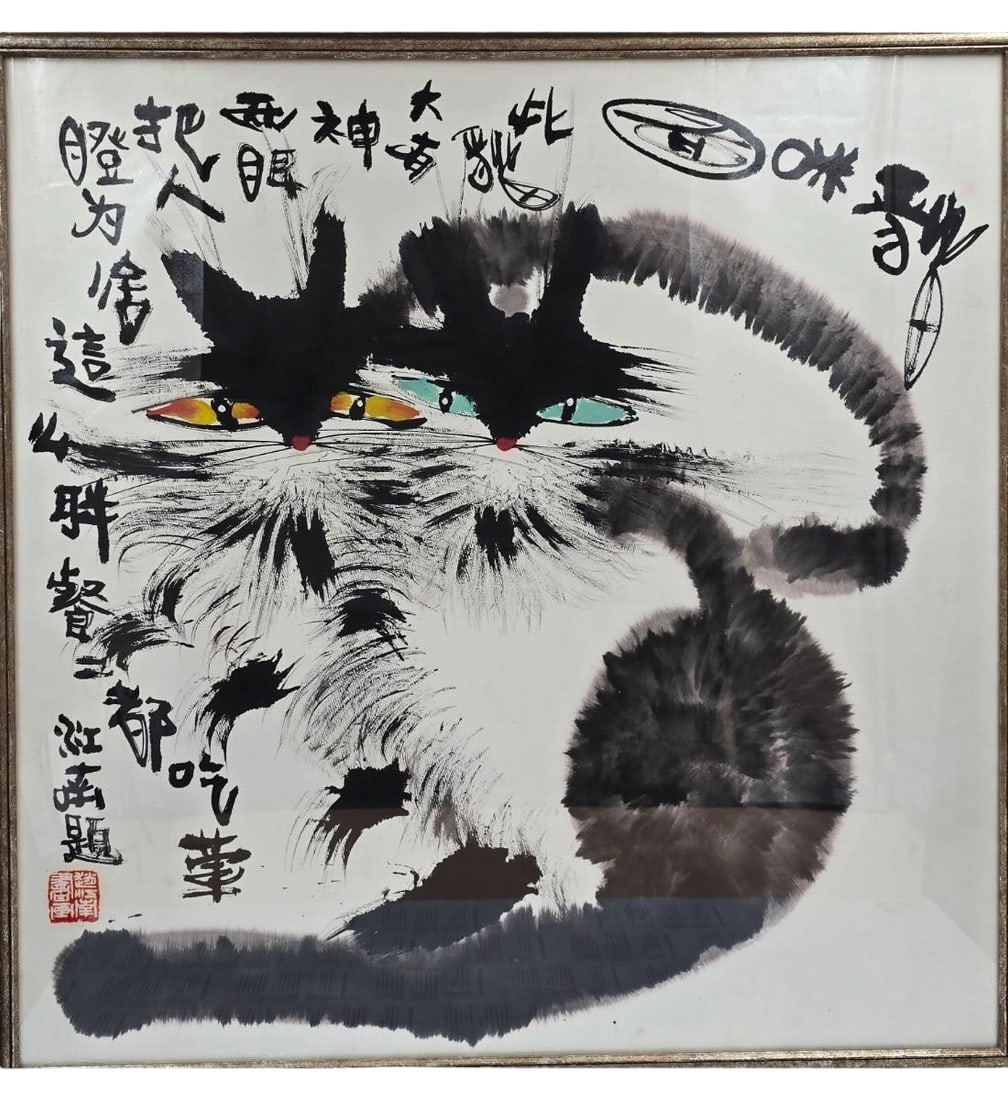 貓咪
此貓
大有
神
两眼
把人
瞪为啥這么胖餐〻都吃葷
江南題